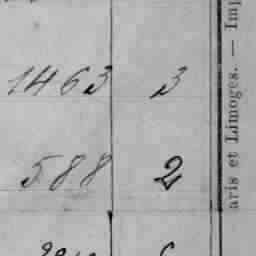 1463 3
588 2
aris et Limoges. — Imp